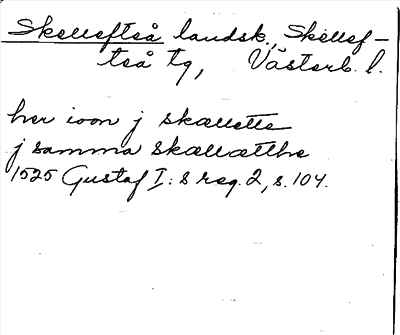 Skellefteå landsk., Skellef-
teå tg, Västerb. l.
her ioon j skællette
j samma skællætthe
1525 Gustaf I: s reg. 2, s. 104.